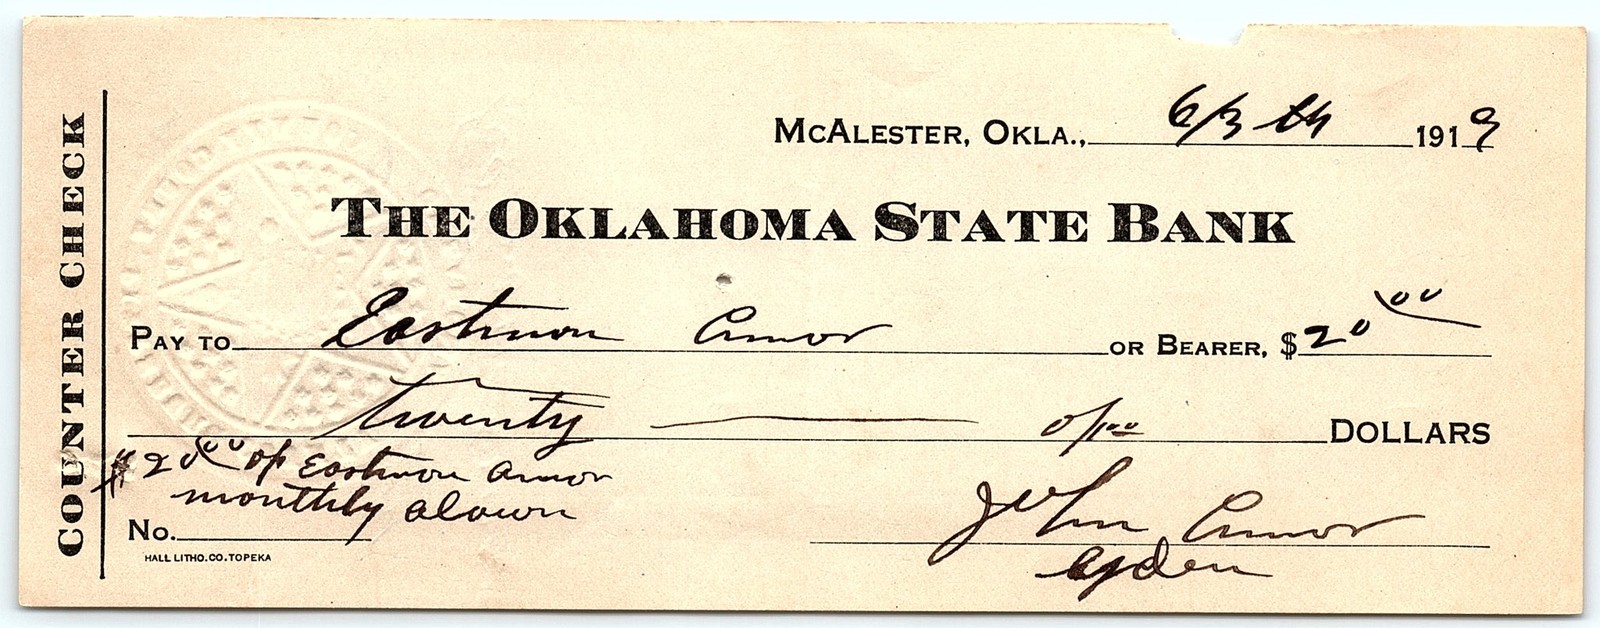 COUNTER CHECK
McAlester, Okla., 6/3 th 1919
The Oklahoma State Bank
Pay to Eastmon Amor or Bearer, $20 00
Twenty 0/00 DOLLARS
$20 00 of Eastmon Amor
monthly alown
No.
John Amor
HALL LITHO.CO.TOPEKA